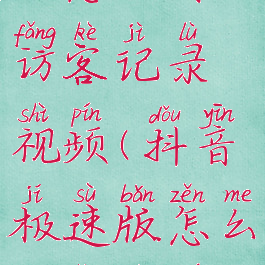 fǎng kè jì lù
访客记录
shì pín dǒu yīn
视频(抖音
jí sù bǎn zěn me
极速版怎么